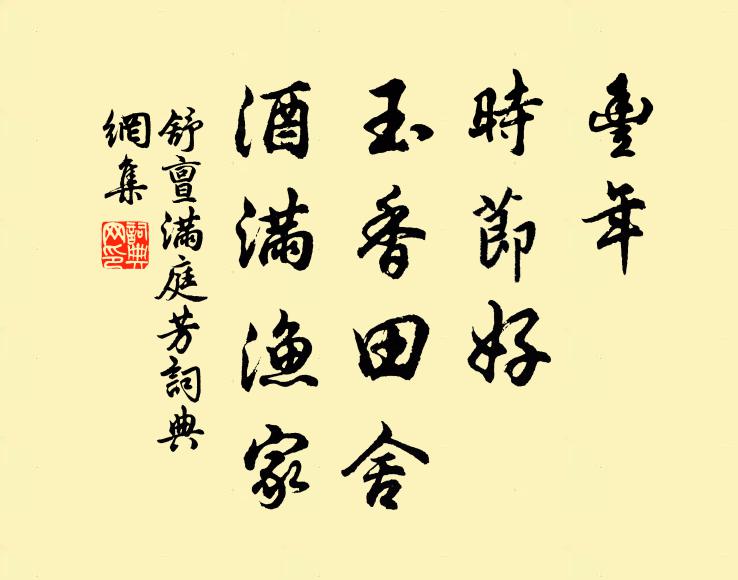 豐年
時節好
玉香田舍
酒滿漁家
舒亶滿庭芳詞典
網集
詞典網印